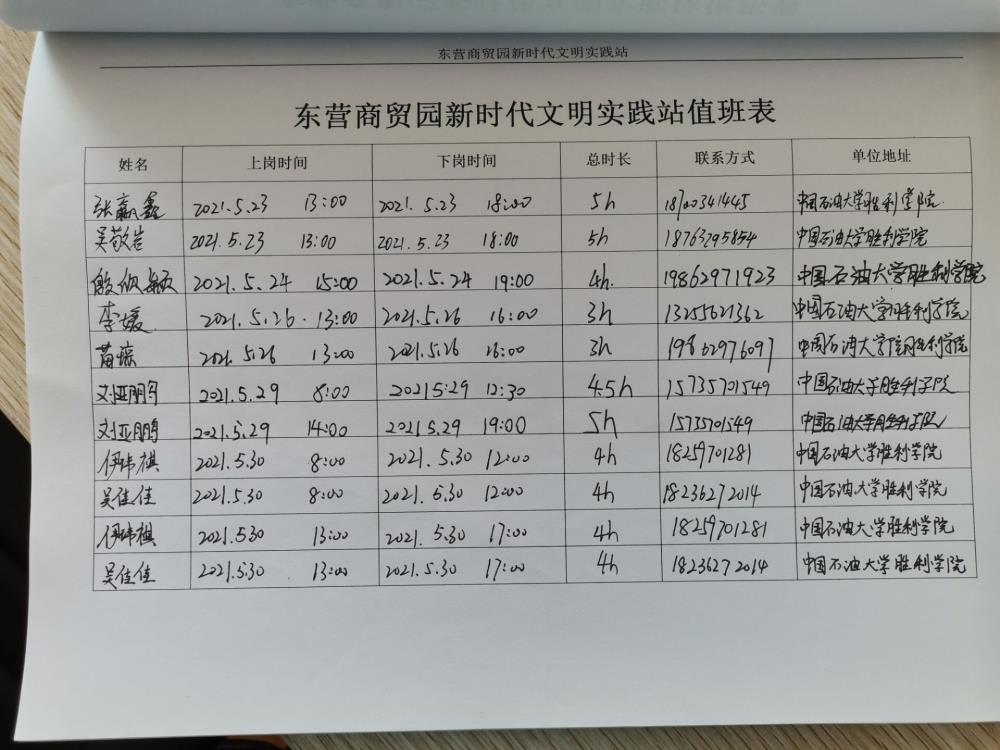 东营商贸园新时代文明实践站
东营商贸园新时代文明实践站值班表
姓名 上岗时间 下岗时间 总时长 联系方式 单位地址
张赢鑫 2021.5.23 13:00 2021.5.23 18:00 5h 18700341445 中国石油大学胜利学院
吴敬岩 2021.5.23 13:00 2021.5.23 18:00 5h 18763295854 中国石油大学胜利学院
殷欣 2021.5.24 15:00 2021.5.24 19:00 4h. 19862971923 中国石油大学胜利学院
李媛 2021.5.26. 13:00 2021.5.26 16:00 3h 13255621362 中国石油大学胜利学院
苗琼 2021.5.26 13:00 2021.5.26 16:00 3h 19862976097 中国石油大学胜利学院
刘亚鹏 2021.5.29 8:00 2021 5.29 12:30 4.5h 15735701549 中国石油大学胜利学院
刘亚鹏 2021.5.29 14:00 2021 5.29 19:00 5h 15735701549 中国石油大学胜利学院
伊祎祺 2021.5.30 8:00 2021.5.30 12:00 4h 18259701281 中国石油大学胜利学院
吴佳佳 2021.5.30 8:00 2021.5.30 12:00 4h 18236272014 中国石油大学胜利学院
伊祎祺 2021.5.30 13:00 2021.5.30 17:00 4h 18259701281 中国石油大学胜利学院
吴佳佳 2021.5.30 13:00 2021.5.30 17:00 4h 18236272014 中国石油大学胜利学院